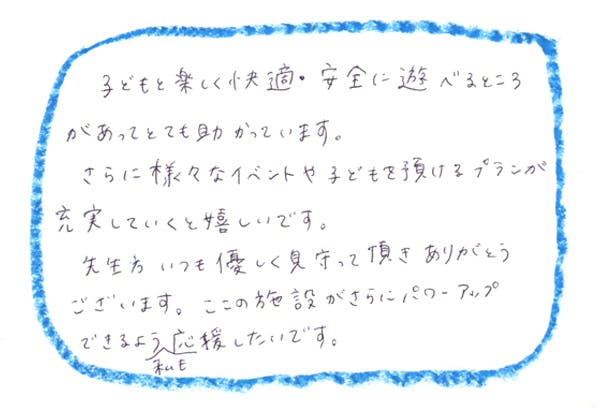 子どもと楽しく快適・安全に遊べるところ
があってとても助かっています。
さらに様々なイベントや子どもを預けるプランが
充実していくと嬉しいです。
先生方いつも優しく見守って頂きありがとう
ございます。ここの施設がさらにパワーアップ
できるよう応援したいです。
私も